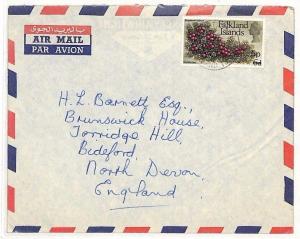 بالبريد الجوي
AIR MAIL
PAR AVION
Falkland
Islands
5p
6d
H. L. Barnett Esq.,
Brunswick House,
Torridge Hill,
Bideford,
North Devon,
England.